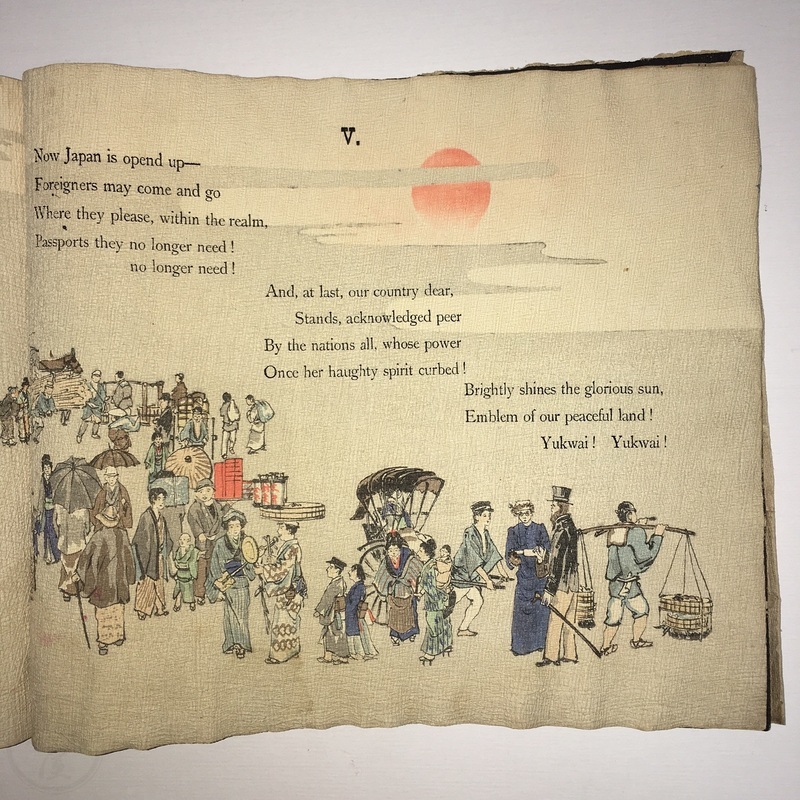 V.
Now Japan is opend up—
Foreigners may come and go
Where they please, within the realm,
Passports they no longer need !
no longer need !
And, at last, our country dear,
Stands, acknowledged peer
By the nations all, whose power
Once her haughty spirit curbed !
Brightly shines the glorious sun,
Emblem of our peaceful land !
Yukwai ! Yukwai !